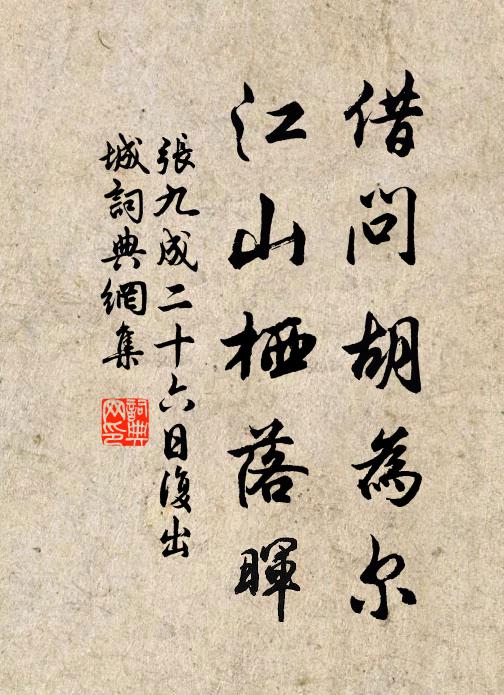 借問胡為爾
江山栖落暉
張九成二十六日復出
城詞典網集
詞典
网印